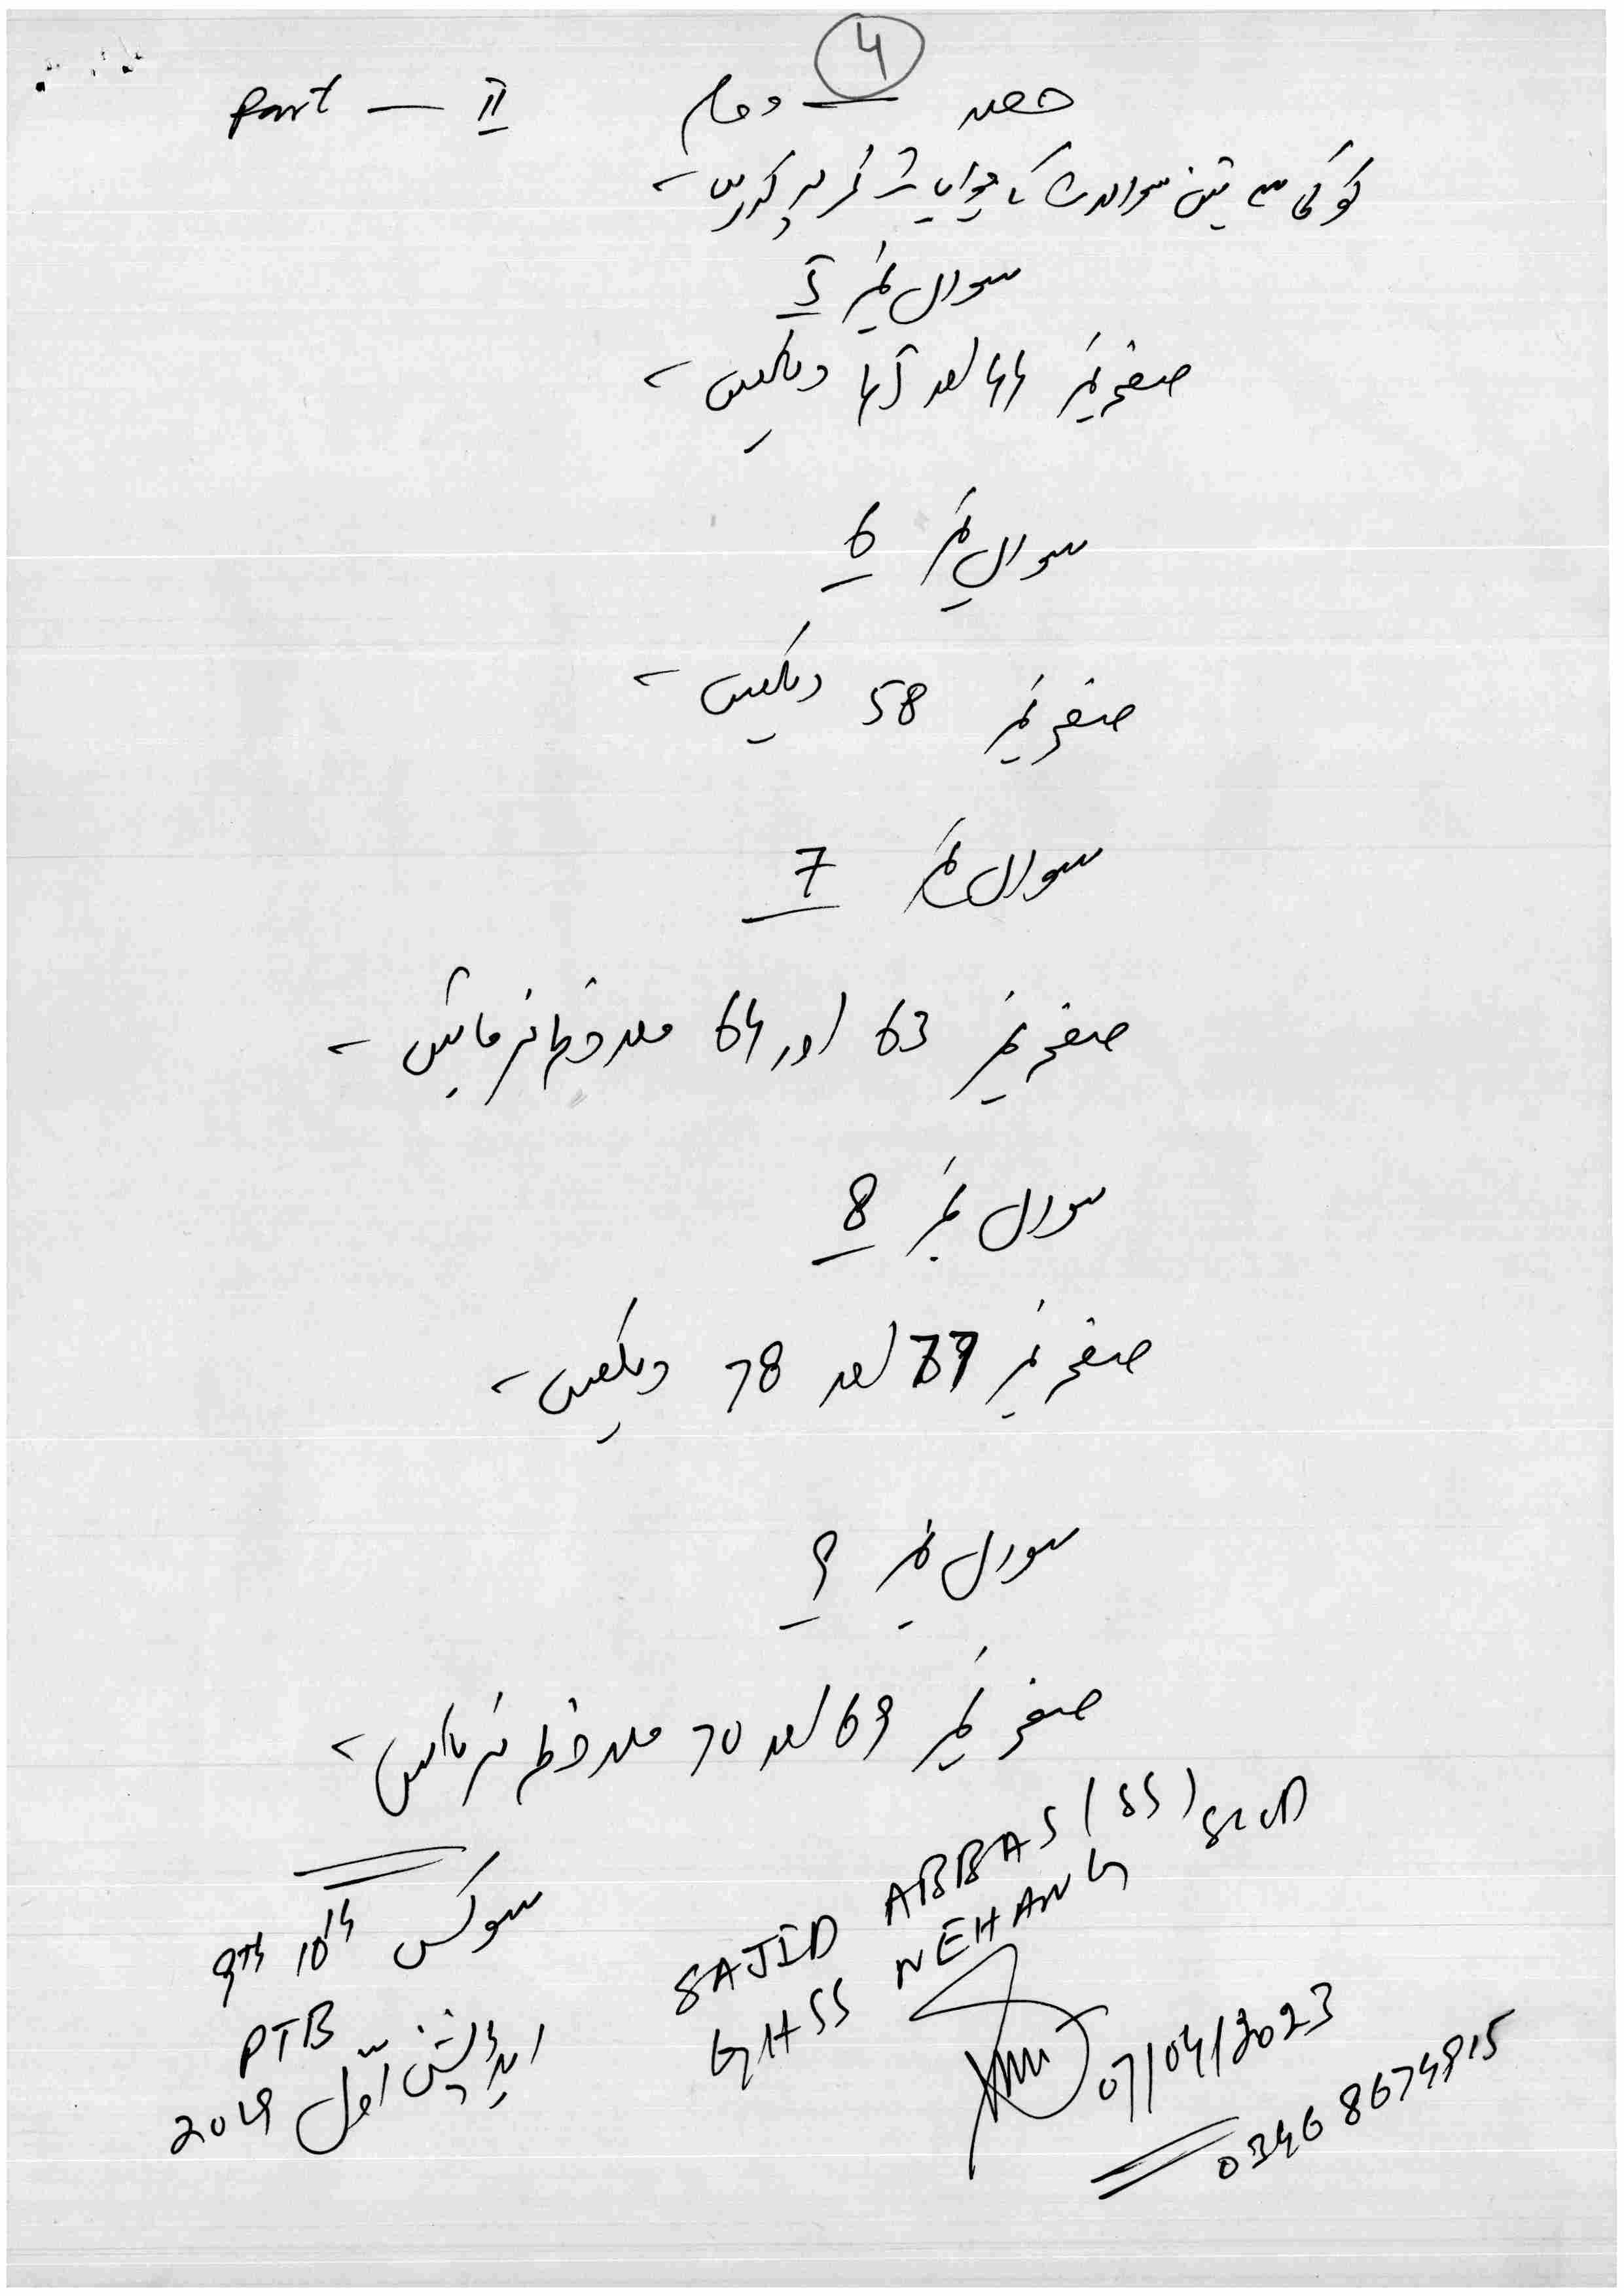 4
حصہ — دوم Part — II
کوئی سے تین سوالات کا جوابات تحریر کریں۔
سوال نمبر 5
صفحہ نمبر 44 اور 45 دیکھیں۔
سوال نمبر 6
صفحہ نمبر 58 دیکھیں۔
سوال نمبر 7
صفحہ نمبر 63 اور 64 ملاحظہ فرمائیں۔
سوال نمبر 8
صفحہ نمبر 77 اور 78 دیکھیں۔
سوال نمبر 9
صفحہ نمبر 69 اور 70 ملاحظہ فرمائیں۔
SAJID ABBAS (SS)
GHSS NEHANG
07/04/2023
سوکس 9th 10th
PTB
ایڈیشن اول 2019